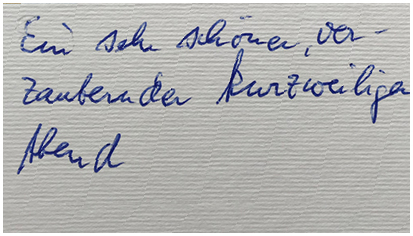 Ein sehr schöner, ver-
zaubernder kurzweiliger
Abend